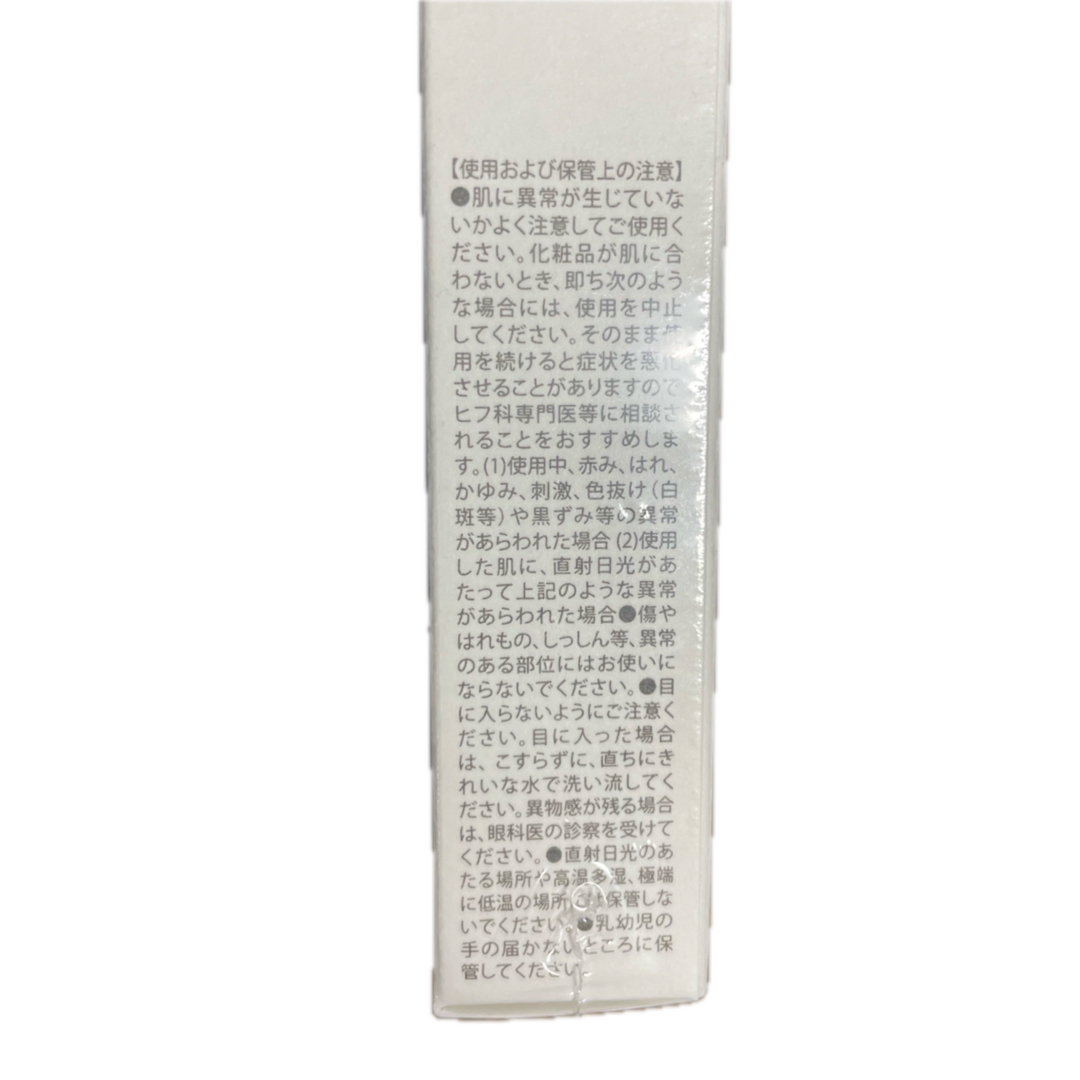 【使用および保管上の注意】
●肌に異常が生じていな
いかよく注意してご使用く
ださい。化粧品が肌に合
わないとき、即ち次のよう
な場合には、使用を中止
してください。そのまま使
用を続けると症状を悪化
させることがありますので
ヒフ科専門医等に相談さ
れることをおすすめしま
す。(1)使用中、赤み、はれ、
かゆみ、刺激、色抜け(白
斑等)や黒ずみ等の異常
があらわれた場合 (2)使用
した肌に、直射日光があ
たって上記のような異常
があらわれた場合●傷や
はれもの、しっしん等、異常
のある部位にはお使いに
ならないでください。●目
に入らないようにご注意く
ださい。目に入った場合
は、こすらずに、直ちにき
れいな水で洗い流してく
ださい。異物感が残る場合
は、眼科医の診察を受けて
ください。●直射日光のあ
たる場所や高温多湿、極端
に低温の場所には保管しな
いでください。●乳幼児の
手の届かないところに保
管してください。